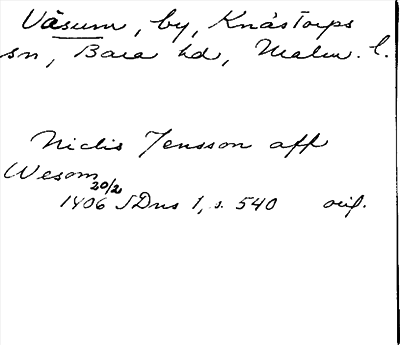 Väsum, by, Knästorps
sn, Bara hd, Malm. l.
Niclis Jensson aff
Wesom
20/2
1406 SDns 1, s. 540 orig.